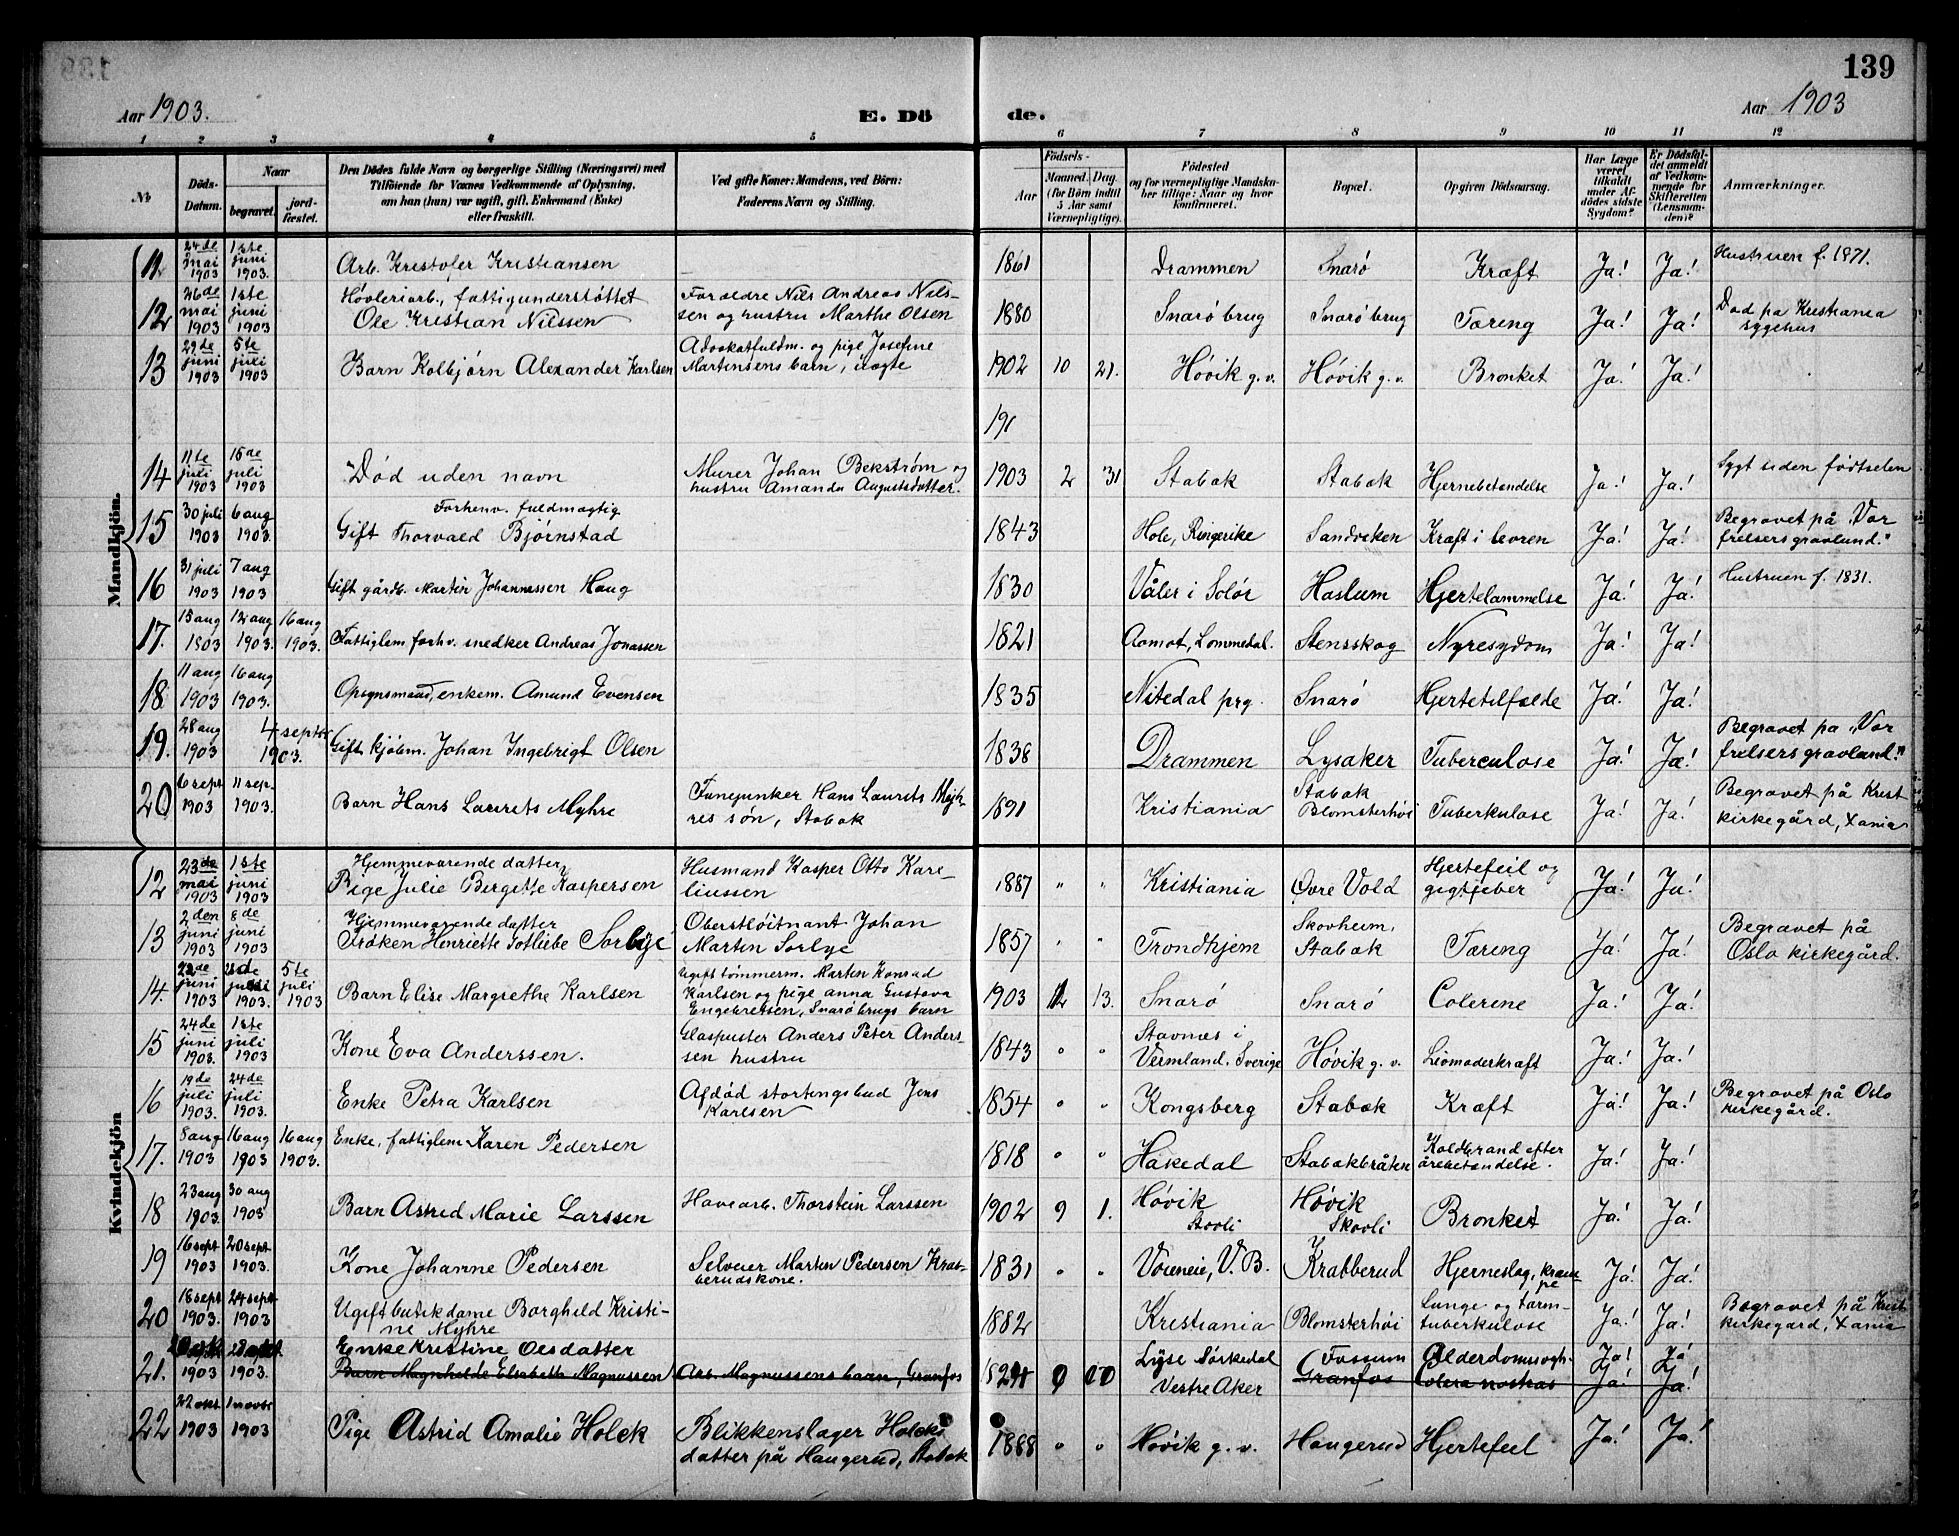 139
Aar 1903. E. Dö de. Aar 1903
1 2 3 4 5 6 7 8 9 10 11 12
No Döds-Datum. Naar begravet. jord-fæstet. Den Dödes fulde Navn og borgerlige Stilling (Næringsvei) med Tilföiende for Voxnes Vedkommende af Oplysning, om han (hun) var ugift, gift, Enkemand (Enke) eller fraskilt. Ved gifte Koner: Mandens, ved Börn: Faderens Navn og Stilling. Aar Födsels- Maaned. Dag. (for Börn indtil 5 Aar samt Værnepligtige). Födested og for værnepligtige Mandskaber tillige: Naar og hvor konfirmeret. Bopæl. Opgiven Dödsaarsag. Har Læge været tilkaldt under Afdödes sidste Sygdom? Er Dödsfaldet anmeldt af Vedkommende for Skifteretten (Lensmanden)? Anmærkninger.
Mandkjön.
11 24de mai 1903 1ste juni 1903. Arb. Kristofer Kristiansen 1861 Drammen Snarø Kræft Ja! Ja! Hustruen f. 1871.
12 26de mai 1903 1ste juni 1903 Høvleriarb., fattigunderstøttet Ole Kristian Nilssen Forældre Nils Andreas Nilssen og hustru Marthe Olsen 1880 Snarøbrug Snarøbrug Tæring Ja! Ja! Død på Kristiania sygehus
13 29de juni 1903 5te juli 1903 Barn Kolbjørn Alexander Karlsen Advokatfuldm. og pige Josefine Martinsens barn, uægte 1902 10 21. Høvik g.v. Høvik g.v. Bronket Ja! Ja!
191
14 11te juli 1903 15de juli 1903 Død uden navn Murer Johan Bekstrøm og hustru Amanda Augustsdatter. 1903 2 31 Stabæk Stabæk Hjernebetændelse Ja! Ja! Sygt siden fødtselen
15 30 juli 1903 6 aug 1903. Forhenv. fuldmægtig Gift Thorvald Bjørnstad 1843 Hole, Ringerike Sandviken Kræft i leveren Ja! Ja! Begravet på "Vor frelsers gravlund."
16 31 juli 1903 7 aug 1903 Gift gårdb. Martin Johannessen Haug 1830 Våler i Solør Haslum Hjertelammelse Ja! Ja! Hustruen f. 1831.
17. 15 aug 1903 12 aug 1903. 16 aug 1903. Fattiglem forhv. snedker Andreas Jonassen 1821 Aamot, Lommedal. Stensskog Nyresygdom Ja! Ja!
18 11 aug 1903 16 aug 1903. Opsynsmand, enkem. Amund Evensen 1835 Nitedal prg. Snarø Hjertetilfælde Ja! Ja!
19. 28 aug 1903 4 septbr 1903. Gift kjøbm. Johan Ingebrigt Olsen 1838 Drammen Lysaker Tuberculose Ja! Ja! Begravet på "Vor frelsers gravland."
20 6 sept 1903 11 sep. 1903. Barn Hans Laurits Myhre Hans Laurits søn, Stabæk 1891 Kristiania Stabæk Blomsterhøi Tuberkulose Ja! Ja! Begravet på Krist kirkegård, Xania
Kvindekjön
12 23de mai 1903 1ste juni 1903 Hjemmeværende datter Pige Julie Birgitte Kaspersen Husmand Kasper Otto Kareliussen 1887 " " Kristiania Øvre Vold Hjertefeil og gigtfeber Ja! Ja!
13 2den juni 1903 8de juni 1903 Hjemmeværende datter Frøken Henriette Gotliebe Sørbye Oberstløitnant Johan Martin Sørbye 1857 " " Trondhjem Skovheim, Stabæk Tæring Ja! Ja! Begravet på Oslo kirkegård.
14. 22de juni 1903 1903. 5te juli 1903 Barn Elise Margrethe Karlsen Ugift tømmerm. Marten Konrad Karlsen og pige Anna Gustava Engebretsen, Snarøbrugs barn 1903 13. Snarø Snarø Colerine Ja! Ja!
15 24de juni 1903. 1ste juli 1903 Kone Eva Anderssen. Glaspuster Anders Peter Anderssen hustru 1843 " " Stavnæs i Vermland. Sverige Høvik g.v. Livmoderkræft Ja! Ja!
16 19de juli 1903. 24de juli 1903. Enke Petra Karlsen Afdød stortingsbud Jens Karlsen 1854 " " Kongsberg Stabæk Kræft Ja! Ja! Begravet på Oslo kirkegård.
17. 8 aug 1903 16 aug 1903 16 aug 1903. Enke, fattiglem Karen Pedersen 1818 " " Hakedal Stabækbråten Koldbrand efter årebetændelse. Ja! Ja!
18 23 aug 1903. 30 aug 1903 Barn Astrid Marie Larssen Havearb. Thorstein Larssen 1902 9 1. Høvik Høvik Skovli Bronket Ja! Ja!
19 16 sept 1903 20 sept 1903. Kone Johanne Pedersen Selveier Marten Pedersen Krabberudskone. 1831 " " Vøieneie, V.B. Krabberud Hjerneslag, krampe Ja! Ja!
20 18 sept 1903. 24 sept 1903 Ugift butikdame Borghild Kristine Myhre 1882 Kristiania Blomsterhøi Lunge og tarmtuberkulose Ja! Ja! Begravet på Krist kirkegård, Xania
21. 1903 1903. Enke Kristine Olsdatter Barn Magnhilde Elisabeth Magnussen Arb. Magnussens barn, Granfos Lysø Sørkedal Vestre Aker Fossum Granfos Alderdomssvagh. Colera nostras Ja! Ja! Ja! Ja!
22 22 okt. 1903 1 novbr 1903 Pige Astrid Amalie Holck Blikkenslager Holcks datter på Haugerud, Stabæk 1888 " " Høvik g.v. Haugerud Hjertefeil Ja! Ja!